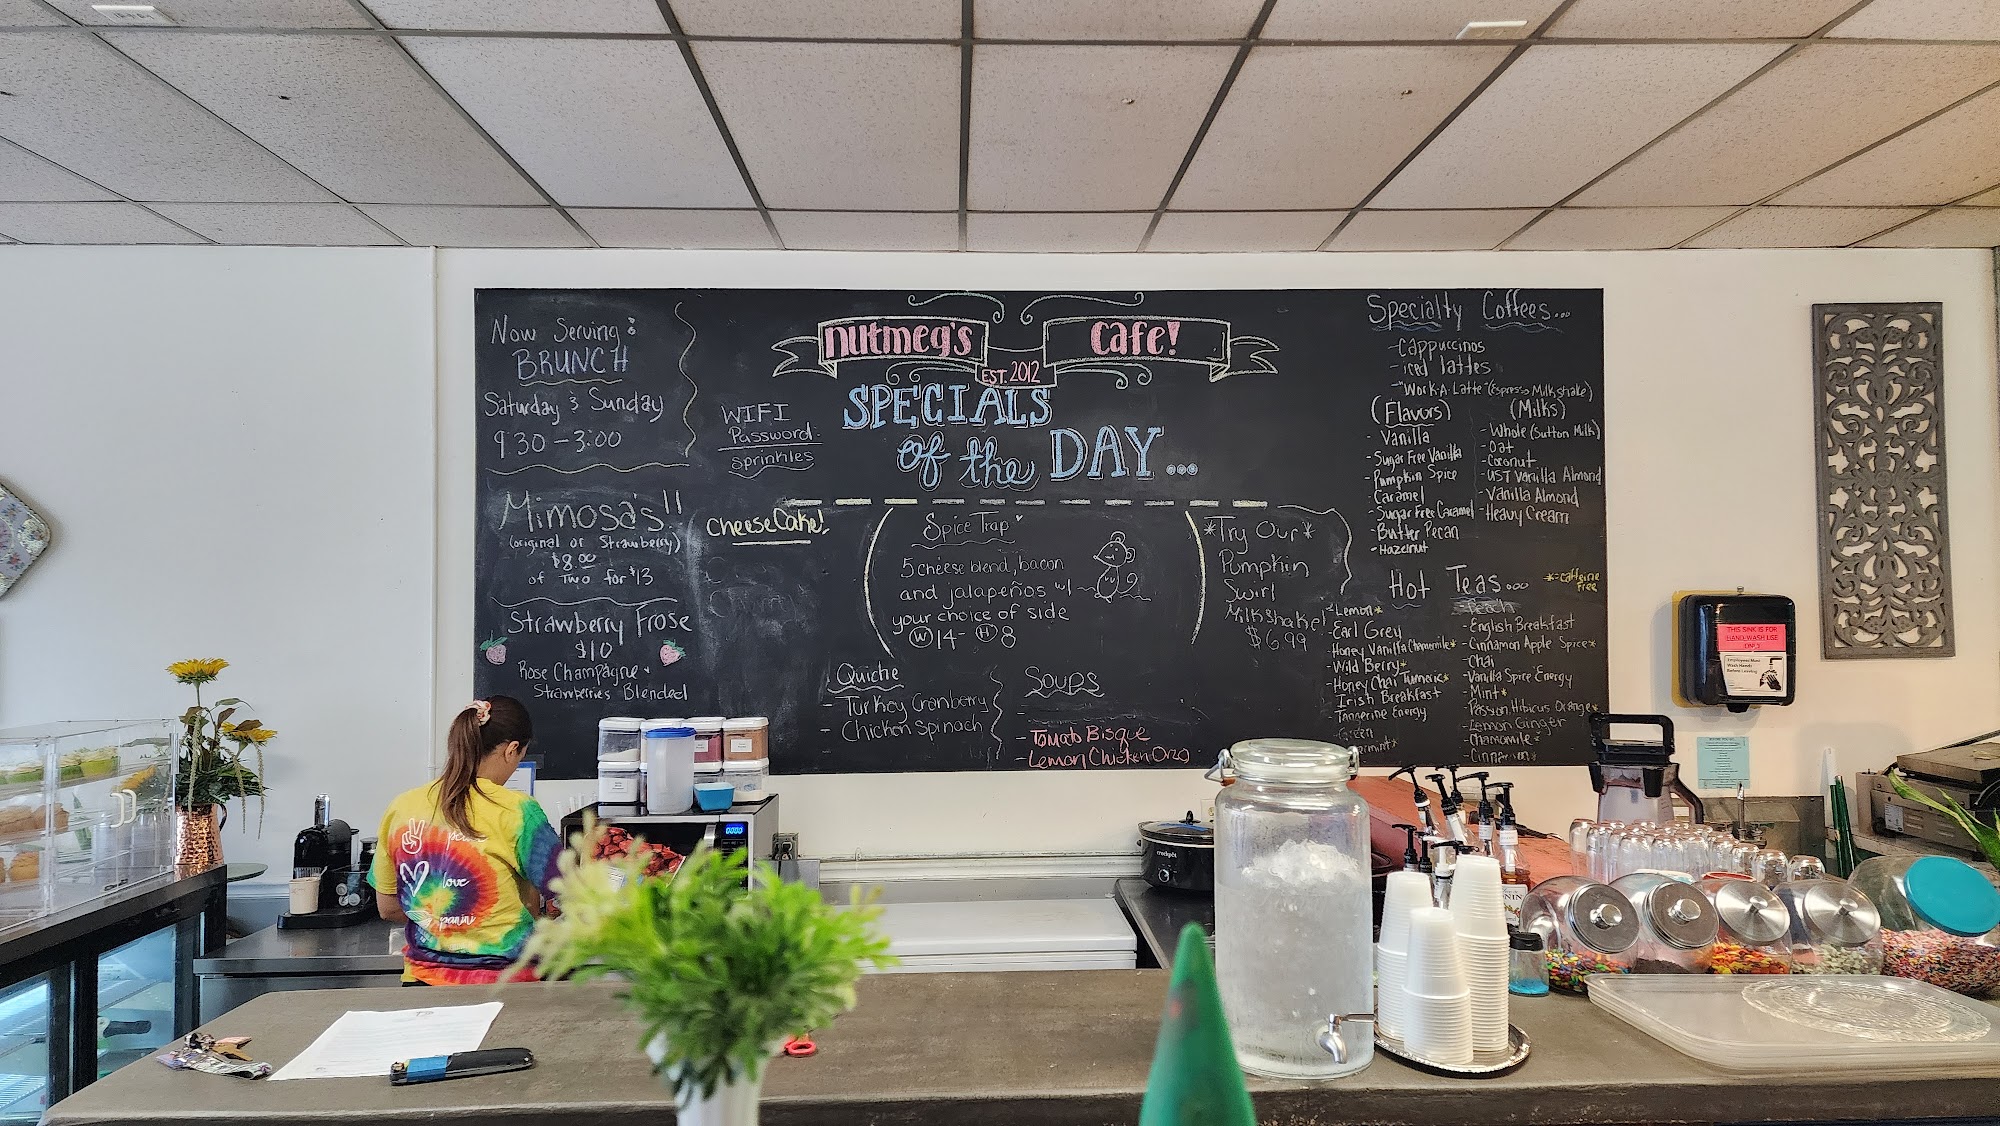 Now Serving:
BRUNCH
Saturday & Sunday
9:30 - 3:00
Mimosa's!!
(original or Strawberry)
$8.00
or Two for $13
Strawberry Frose
$10
Rose Champagne +
Strawberries Blended
nutmeg's Cafe!
EST. 2012
SPECIALS
of the DAY...
WIFI
Password:
Sprinkles
CheeseCake!
Spice Trap
5 cheese blend, bacon
and jalapeños w/
your choice of side
(W) 14 - (H) 8
*Try Our*
Pumpkin
Swirl
Milkshake!
$6.99
Quiche
- Turkey Cranberry
- Chicken Spinach
Soups
- Tomato Bisque
- Lemon Chicken Orzo
Specialty Coffees...
- Cappuccinos
- iced lattes
- "Work-A-Latte" (Espresso Milkshake)
(Flavors)
- Vanilla
- Sugar Free Vanilla
- Pumpkin Spice
- Caramel
- Sugar Free Caramel
- Butter Pecan
- Hazelnut
(Milks)
- Whole (Sutton Milk)
- Oat
- Coconut
- UST Vanilla Almond
- Vanilla Almond
- Heavy Cream
Hot Teas...
*=caffeine
Free
- Lemon*
- Earl Grey
- Honey Vanilla Chamomile*
- Wild Berry*
- Honey Chai Turmeric*
- Irish Breakfast
- Tangerine Energy
- Green
- Peach
- English Breakfast
- Cinnamon Apple Spice*
- Chai
- Vanilla Spice Energy
- Mint*
- Passion Hibicus Orange*
- Lemon Ginger
- Chamomile*
THIS SINK IS FOR
HAND-WASH USE
ONLY
Employees Must
Wash Hands
Before Leaving
love
panini
crockpot